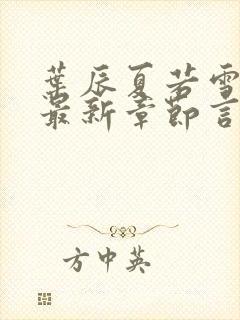 葉辰夏若雪
最新章節言
方中英